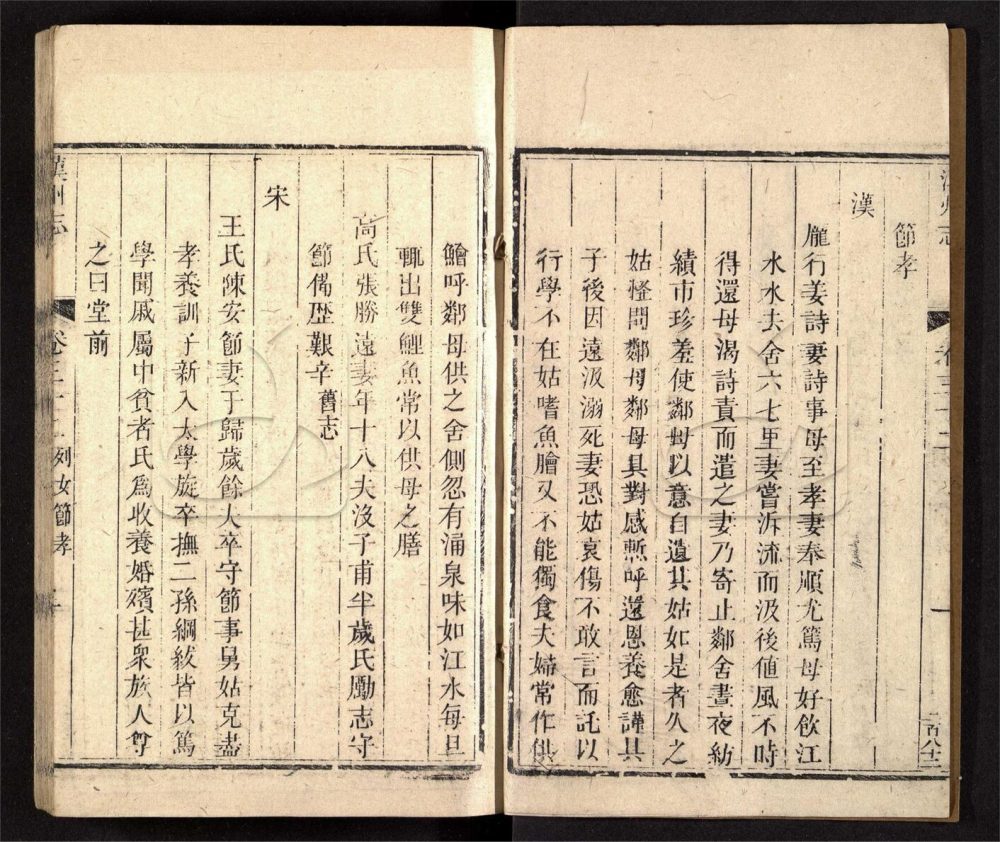 節孝
漢
龐行姜詩妻詩事母至孝妻奉順尤篤母好飲江
水水去舍六七里妻嘗泝流而汲後値風不時
得還母渴詩責而遣之妻乃寄止鄰舍晝夜紡
績市珍羞使鄰母以意自遺其姑如是者久之
姑怪問鄰母鄰母具對感慙呼還恩養愈謹其
子後因遠汲溺死妻恐姑哀傷不敢言而託以
行學不在姑嗜魚膾又不能獨食夫婦常作供
鱠呼鄰母供之舍側忽有涌泉味如江水每旦
輒出雙鯉魚常以供母之膳
高氏張勝遠妻年十八夫沒子甫半歲氏勵志守
節備歷艱辛舊志
宋
王氏陳安節妻于歸歲餘夫卒守節事舅姑克盡
孝義訓子新入太學旋卒撫二孫綱紱皆以篤
學聞戚屬中貧者氏爲收養婚殯甚衆族人尊
之曰堂前
漢州志
卷三十二 列女節孝